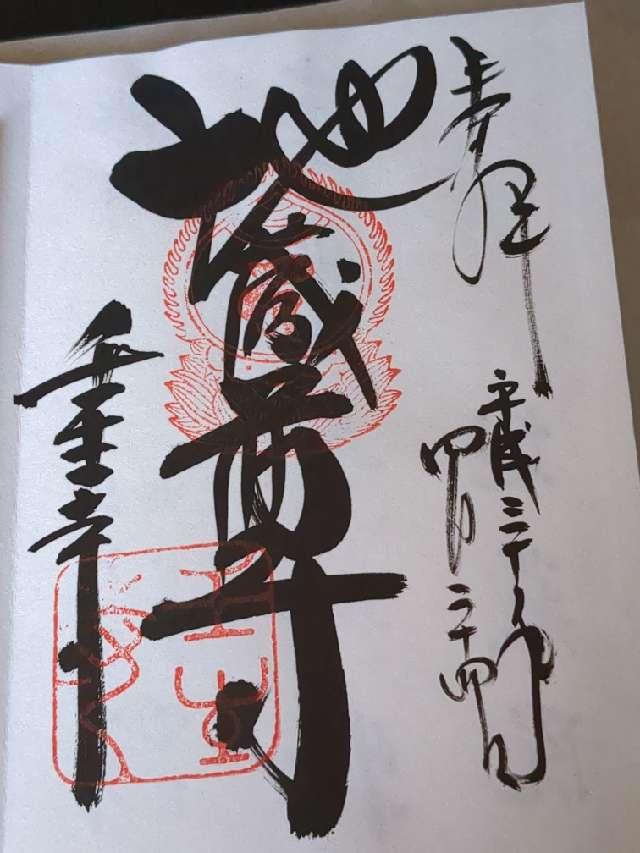 奉拝
平成三十年
四月二十四日
地蔵尊
壬生寺